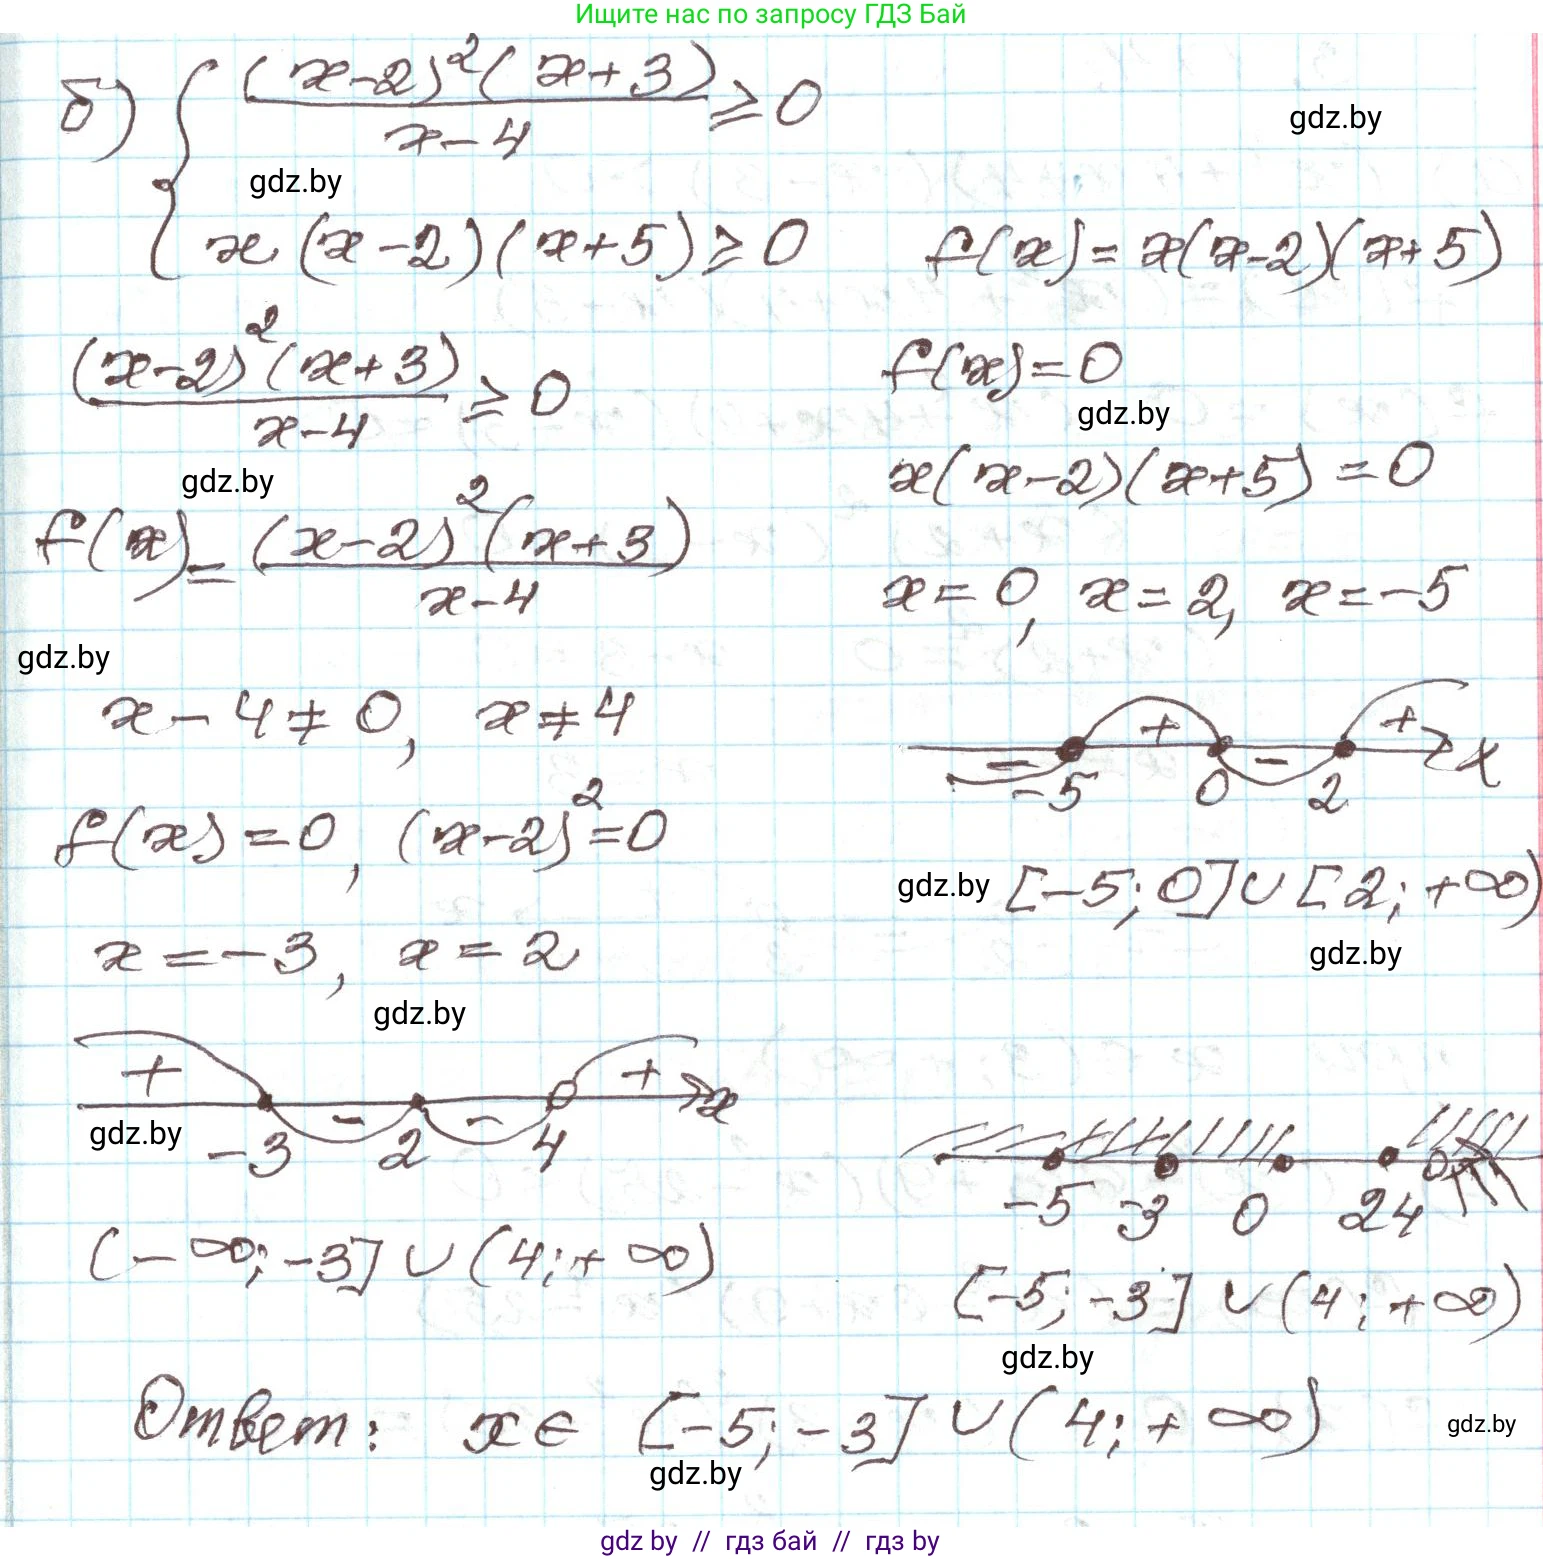 Ищите нас по запросу ГДЗ Бай
б) { (x-2)²(x+3) / x-4 ≥ 0
gdz.by
gdz.by
x(x-2)(x+5) ≥ 0
(x-2)²(x+3) / x-4 ≥ 0
gdz.by
f(x) = (x-2)²(x+3) / x-4
gdz.by
x-4≠0, x≠4
f(x)=0, (x-2)²=0
x=-3, x=2
gdz.by
+ - - + x
gdz.by
-3 2 4
(-∞; -3] ∪ (4; +∞)
f(x) = x(x-2)(x+5)
f(x)=0
gdz.by
x(x-2)(x+5)=0
x=0, x=2, x=-5
- + - + x
-5 0 2
gdz.by
[-5; 0] ∪ [2; +∞)
gdz.by
-5 -3 0 2 4
[-5; -3] ∪ (4; +∞)
gdz.by
Ответ: x∈ [-5; -3] ∪ (4; +∞)
gdz.by
gdz.by
gdz by // гдз бай // gdz by